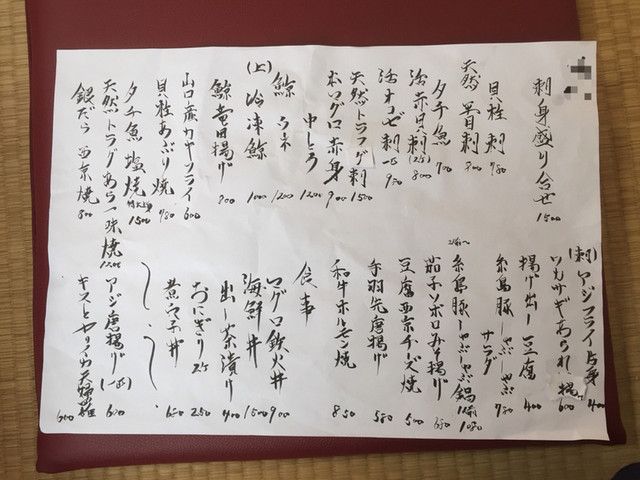 刺身盛り合せ 1500
貝柱刺 750
天然 盲目刺 800
タチ魚 700
活赤貝刺(2ケ) 800
活オコゼ刺 950
天然トラフグ刺 1500
本マグロ赤身 900
中とろ 1200
鯨 ウネ 1200
(上) 冷凍鯨 1000
鯨竜田揚げ 800
山口産カキフライ 600
貝柱あぶり焼 750
タチ魚塩焼 1500
天然トラフグあら一味焼 1200
銀だら西京焼 800
(刺) アジフライ片身 400
ワカサギあられ揚 600
揚げ出し豆腐 400
糸島豚しゃぶしゃぶサラダ 750
糸島豚しゃぶしゃぶ鍋 1人前 1080
茄子ソボロみそ揚げ 650
豆腐西京チーズ焼 500
手羽先唐揚げ 580
和牛ホルモン焼 850
食事
マグロ鉄火丼 900
海鮮丼 1500
出し茶漬け 400
おにぎり 2ケ 250
煮穴子丼 650
アジ唐揚げ 600
キスとヤリイカ天婦羅 600